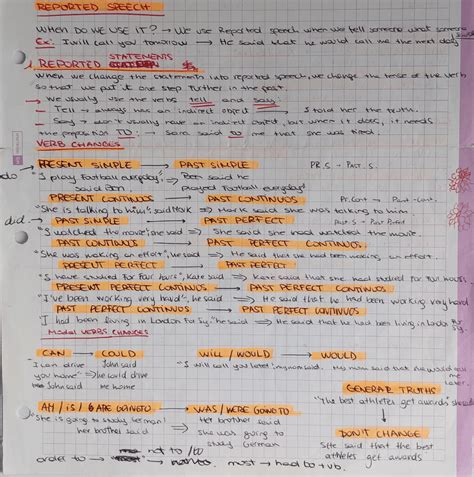 REPORTED SPEECH
WHEN DO WE USE IT? → We use Reported speech when we tell someone what someone said
Ex: I will call you tomorrow → He said that he would call me the next day
1. REPORTED STATEMENTS
When we change the statement into reported speech, we change the tense of the verb
so that we put it one step further in the past.
→ We usually use the verbs tell and say:
- Tell → always has an indirect object → I told her the truth.
- Say → won't usually have an indirect object, but when it does, it needs
the prepos. TO: → Sara said to me that she was tired.
VERB CHANGES
PRESENT SIMPLE → PAST SIMPLE PR.S → Past.S.
do "I play football everyday" ⇒ Ben said he
said Ben played football everyday
PRESENT CONTINUOS → PAST CONTINUOS Pr.Cont → Past-Cont.
"She is talking to him", said Mark ⇒ Mark said she was talking to him
did PAST SIMPLE → PAST PERFECT Past S → Past Perfect
"I watched the movie", she said ⇒ She said she had watched the movie
PAST CONTINUOS → PAST PERFECT CONTINUOS
"She was making an effort", he said ⇒ He said that he had been making an effort.
PRESENT PERFECT → PAST PERFECT
"I have studied for four hours", Kate said ⇒ Kate said that she had studied for four hours
PRESENT PERFECT CONTINUOS → PAST PERFECT CONTINUOS
"I've been working very hard", he said ⇒ He said that he had been working very hard
PAST PERFECT CONTINUOS → PAST PERFECT CONTINUOS
I had been living in London for 5y." he said ⇒ He said that he had been living in London for 5y.
Modal VERBS CHANGES
CAN → COULD WILL / WOULD → WOULD
I can drive John said "I will call you later", my mum said My mum said that she would call me later.
you home" ⇒ he could drive
John said me home
GENERAL TRUTHS
"The best athletes get awards" she said
AM / IS / ARE GOING TO → WAS / WERE GOING TO
"She is going to study German" Her brother said
her brother said ⇒ she was going to
study German
DON'T CHANGE
She said that the best
athletes get awards
order to → not to / to
must → had to + vb.